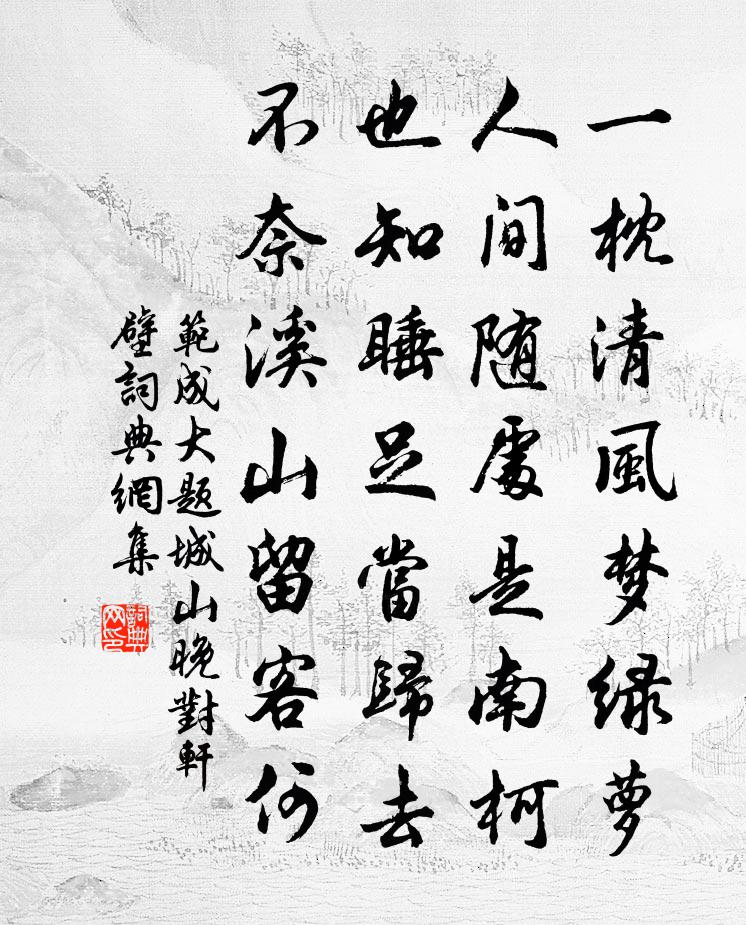 一枕清風梦绿萝
人间随處是南柯
也知睡足當歸去
不奈溪山留客何
範成大题城山晚對軒
壁詞典網集
詞典
网印